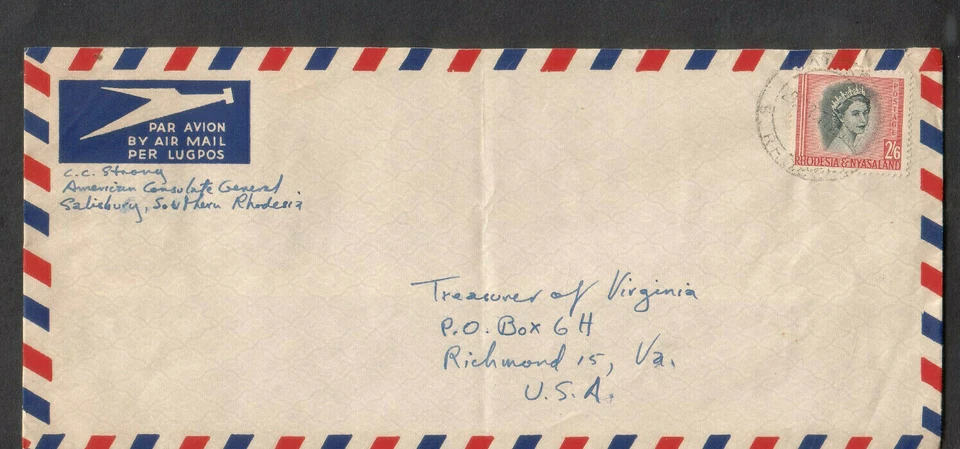 PAR AVION
BY AIR MAIL
PER LUGPOS
C.C. Strong
American Consulate General
Salisbury, Southern Rhodesia
POSTAGE
2/6
RHODESIA & NYASALAND
Treasurer of Virginia
P.O. Box 6H
Richmond 15, Va.
U.S.A.